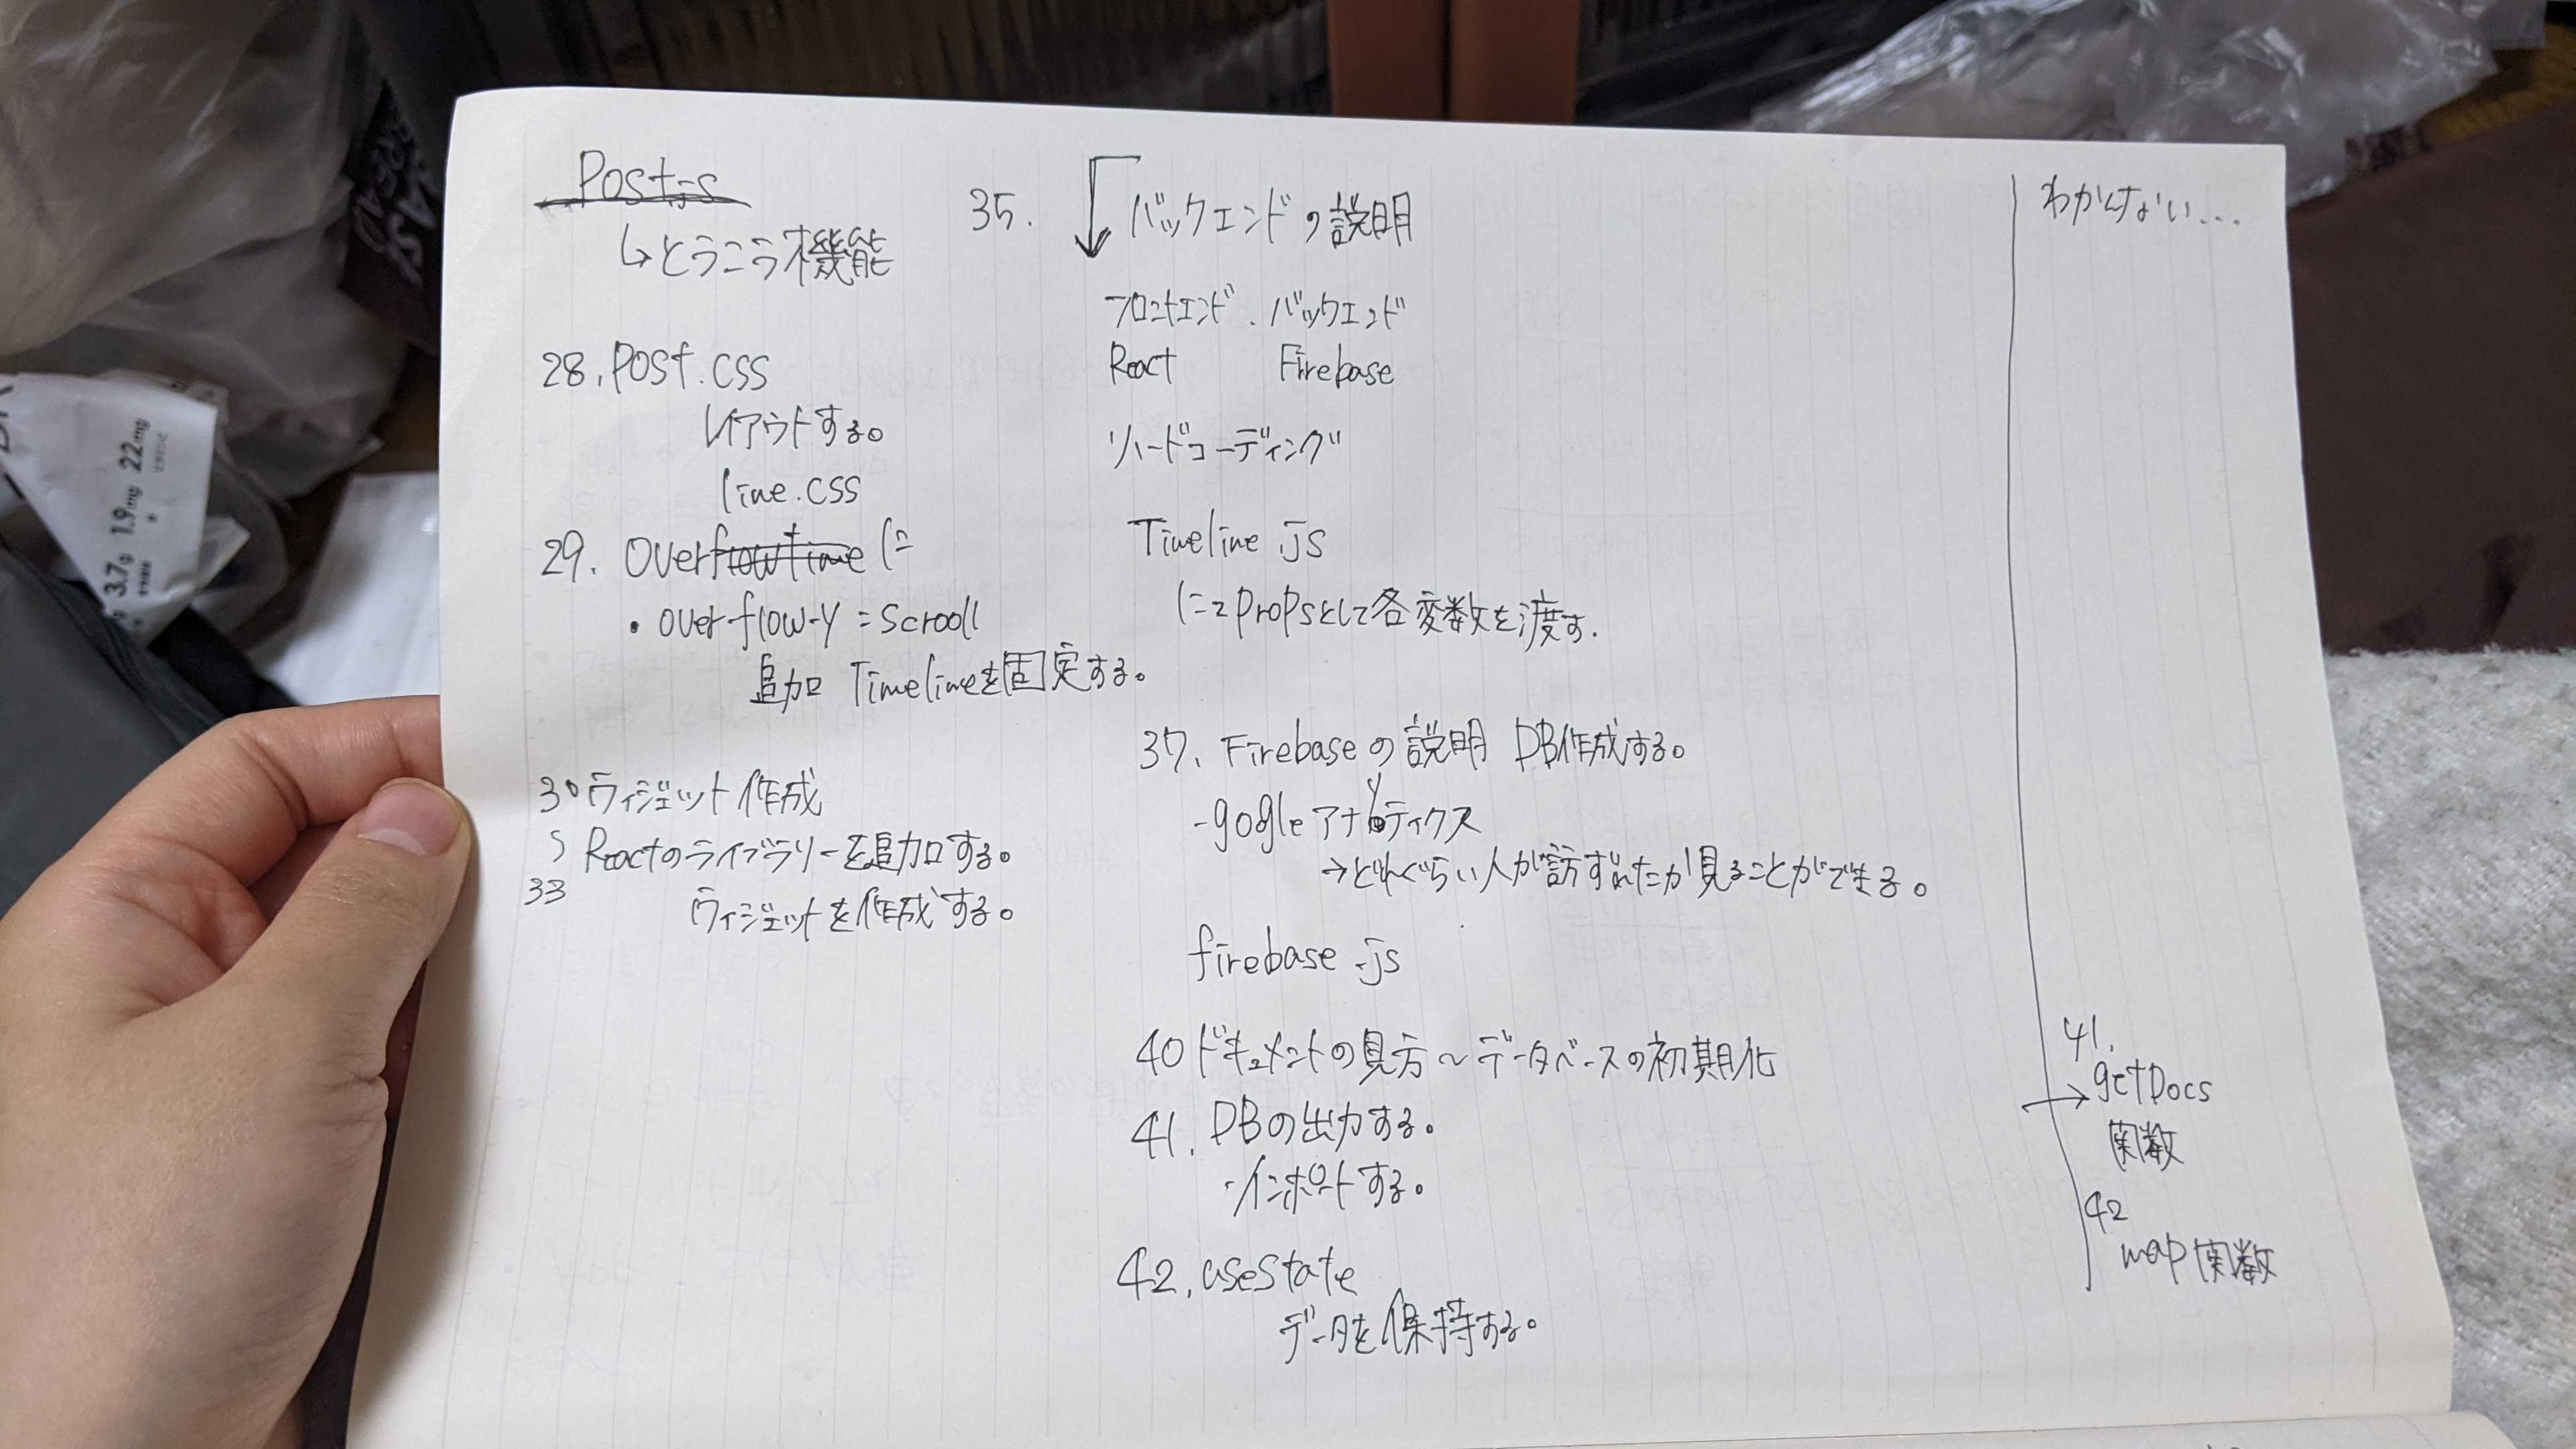 Post.js
↳とうこう機能
28. Post.css
レイアウトする。
line.css
29. Overflowtime に
・overflow-y = scroll
追加 Timelineを固定する。
30 ウィジェット作成
〜 Reactのライブラリーを追加する。
33
ウィジェットを作成する。
35. バックエンドの説明
フロントエンド . バックエンド
React Firebase
ハードコーディング
Timeline.js
にてpropsとして各変数を渡す.
37. Firebaseの説明 DB作成する。
-gogleアナリティクス
→どれぐらい人が訪ずれたか見ることができる。
firebase.js
40 ドキュメントの見方〜データベースの初期化
41. DBの出力する。
・インポートする。
42. useState
データを保持する。
わかんない...
41.
→getDocs
関数
42
map関数
22mg
1.9mg
3.7g